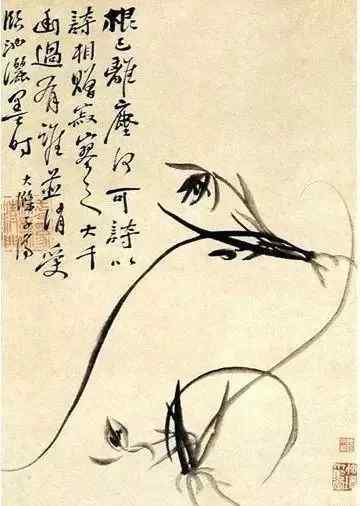 根已離塵何可詩以
詩相贈寂寥之大千
過有誰並消受
臨池灑墨時
大滌子濟